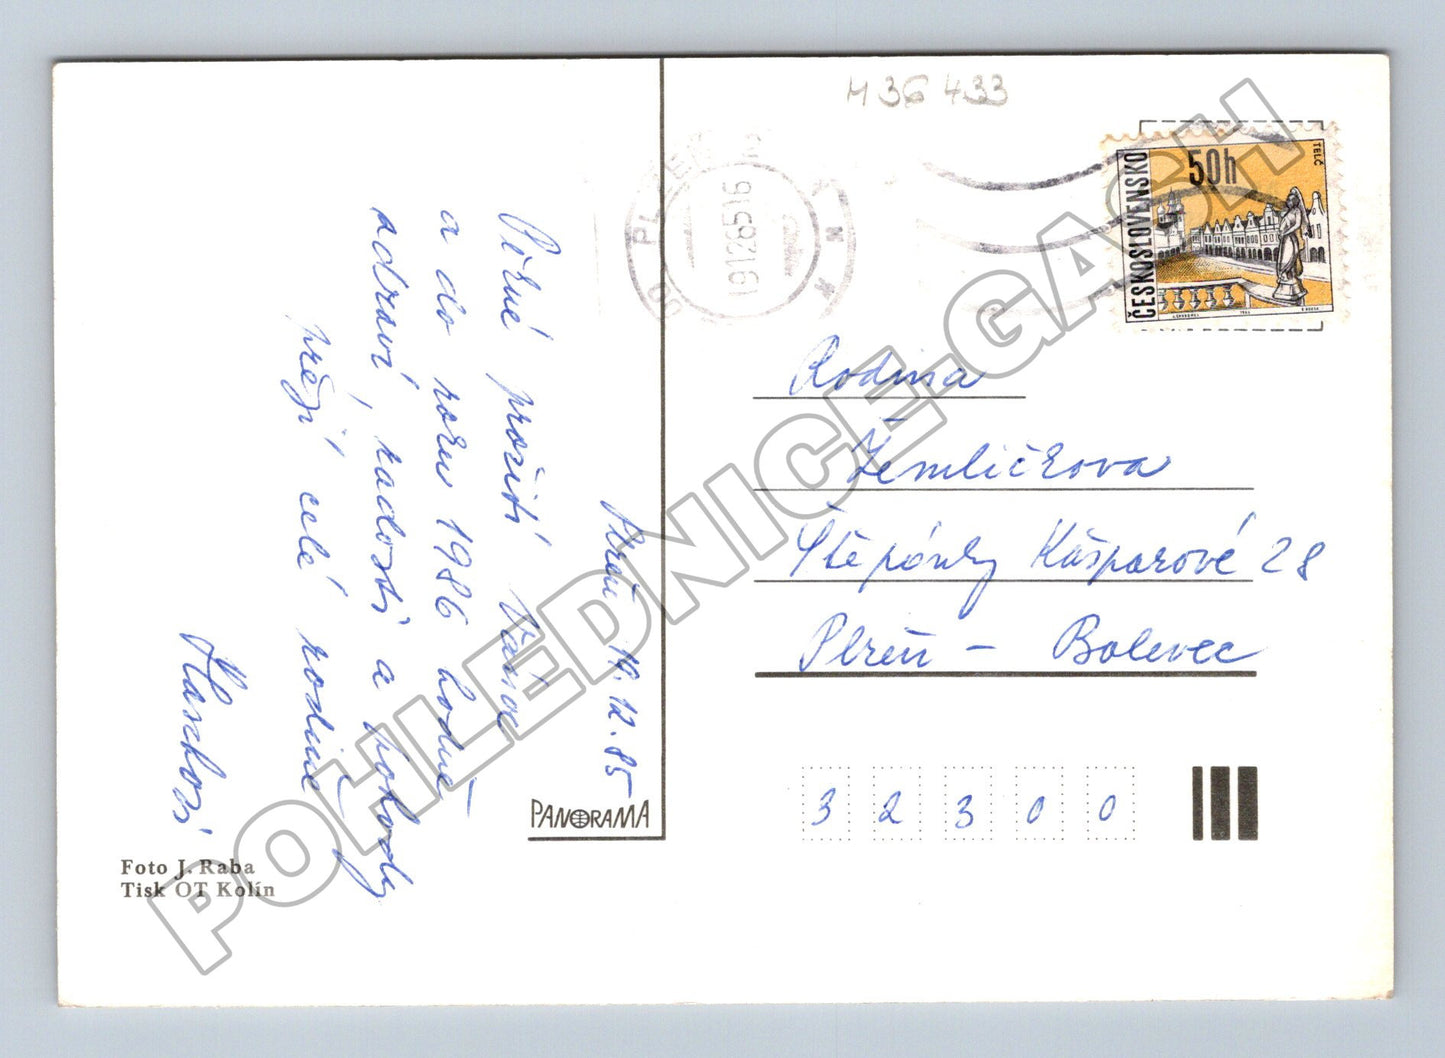 M 36 433
PLZEŇ
19.12.85 16
ČESKOSLOVENSKO
50h
TELČ
1966
Plzeň 19.12.85
Pěkné prožití Vánoc
a do roku 1986 hodně
zdraví, radosti a pohody
přejí celé rodině
Rodina
Žemličkova
Štěpánky Kášparové 28
Plzeň – Bolevec
3 2 3 0 0
PANORAMA
Foto J. Raba
Tisk OT Kolín
POHLEDNICE-GASCH